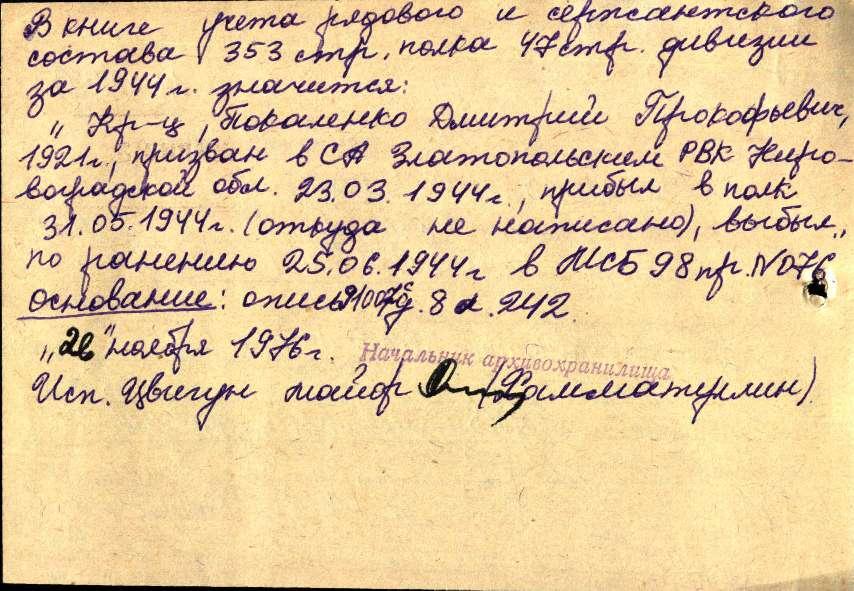 В книге учета рядового и сержантского
состава 353 стр. полка 47 стр. дивизии
за 1944 г. значится:
„Кр-ц, Покаленко Дмитрий Прокофьевич,
1921г., призван в СА Златопольским РВК Киро-
воградской обл. 23.03.1944г., прибыл в полк
31.05.1944г. (откуда не написано), выбыл
по ранению 25.06.1944г в МСБ 98 пр. N076
основание: опись д. 8 л. 242
„26" ноября 1976г.
Начальник архивохранилища
Исп. Цвигун майор